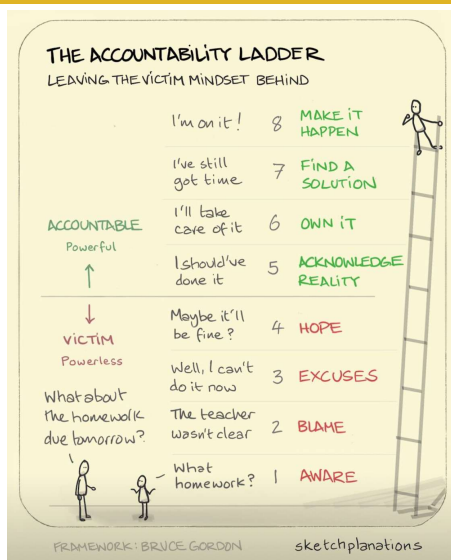 THE ACCOUNTABILITY LADDER
LEAVING THE VICTIM MINDSET BEHIND
I'm on it!
8
MAKE IT
HAPPEN
I've still
got time
7
FIND A
SOLUTION
I'll take
care of it
6
OWN IT
I should've
done it
5
ACKNOWLEDGE
REALITY
ACCOUNTABLE
Powerful
VICTIM
Powerless
Maybe it'll
be fine?
4
HOPE
Well, I can't
do it now
3
EXCUSES
The teacher
wasn't clear
2
BLAME
What
homework?
1
AWARE
What about
the homework
due tomorrow?
FRAMEWORK: BRUCE GORDON
sketchplanations